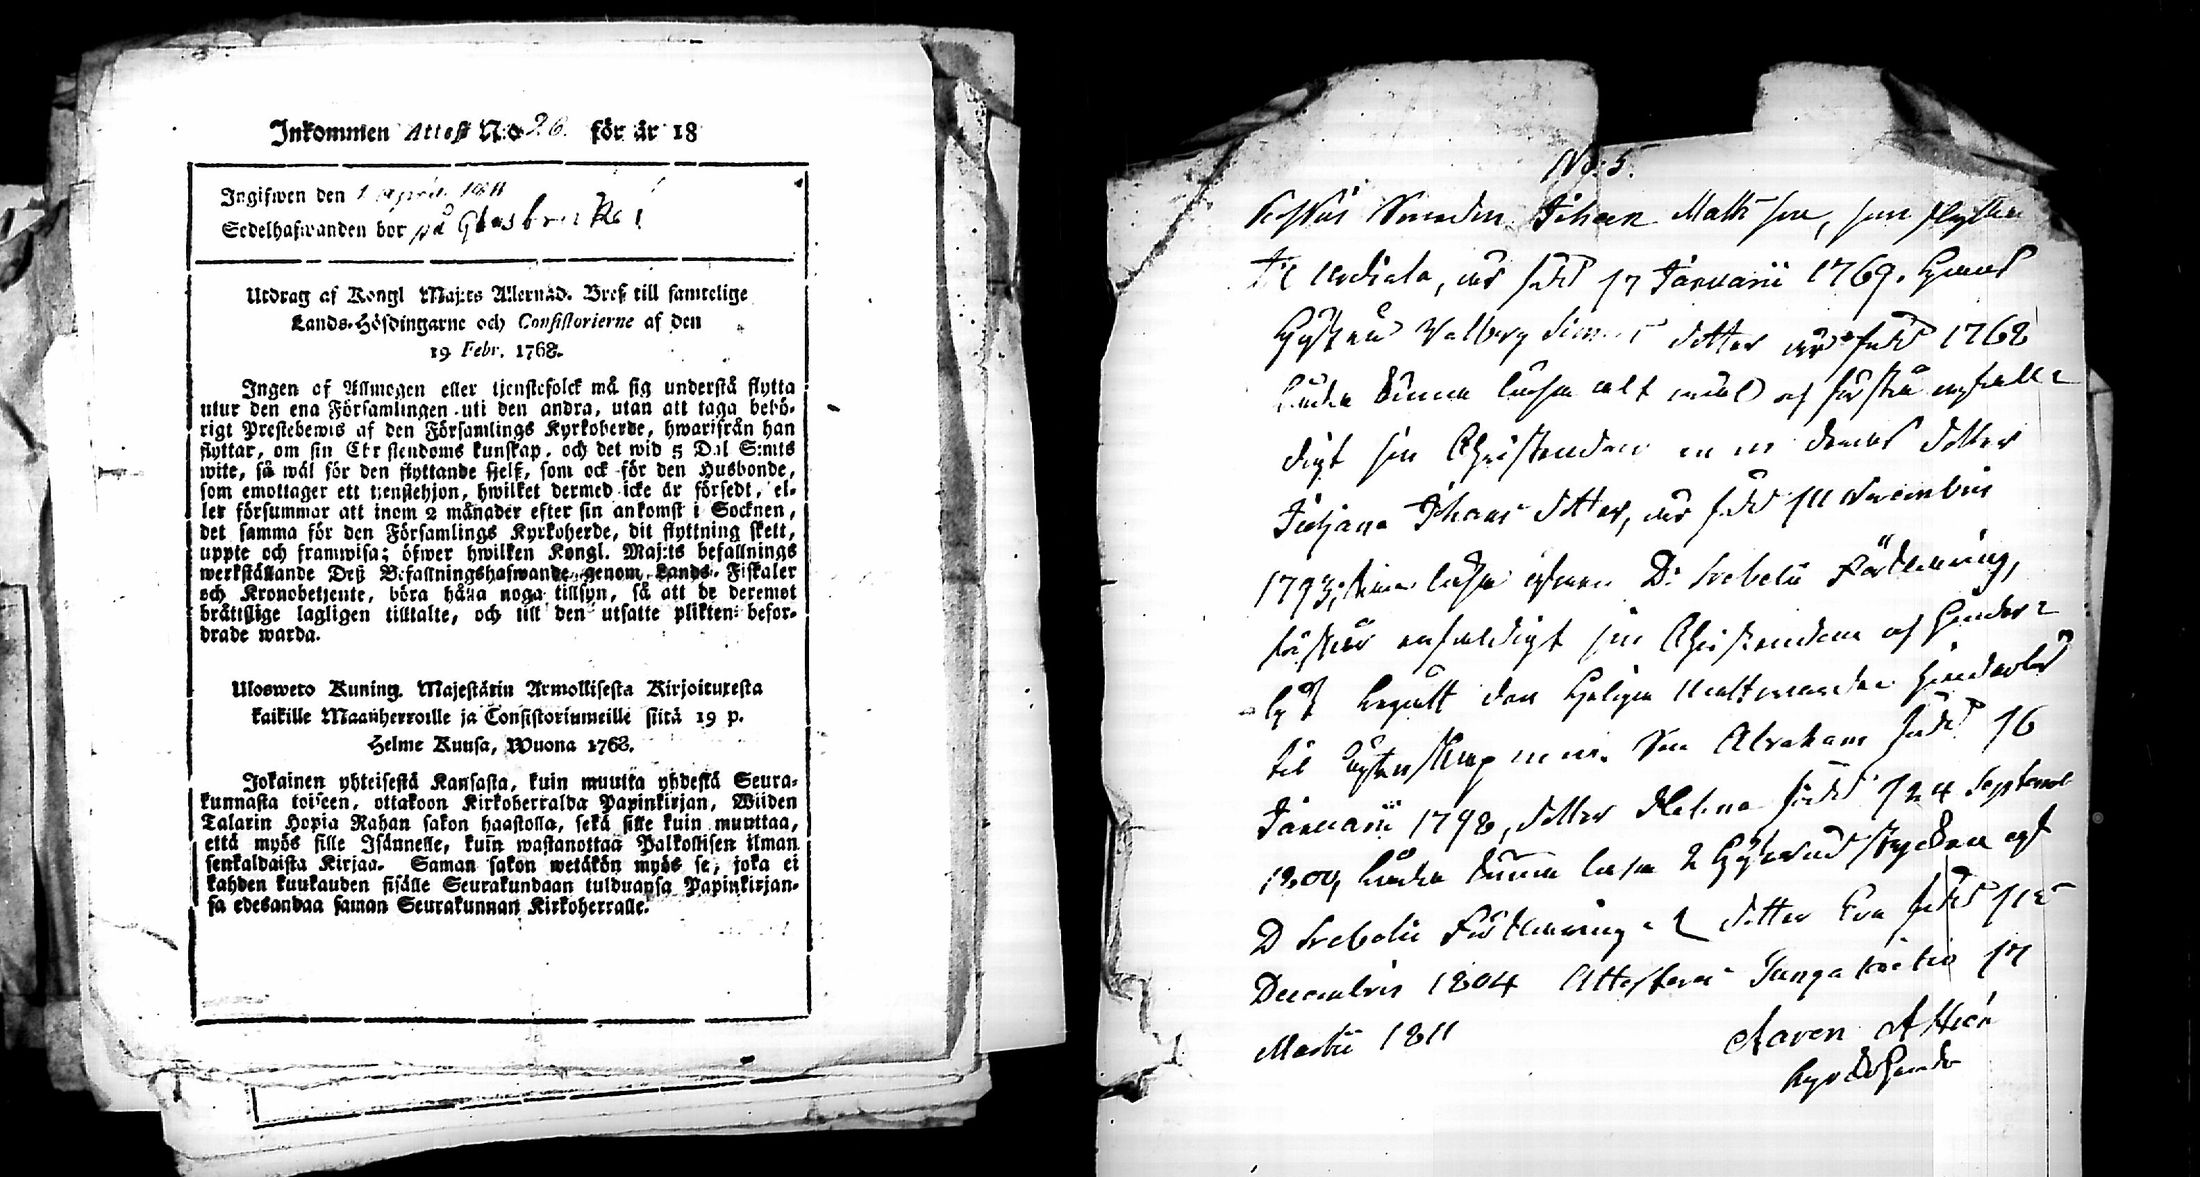 Inkommen Attest N:o 26. för år 18
Ingifwen den 1 April 1811
Sedelhafwanden bor på Glasbruket
Utdrag af Kongl Maj:ts Allernåd. Bref till samtelige
Lands-Höfdingarne och Consistorierne af den
19 Febr. 1768.
Ingen af Allmogen eller tjenstefolck må sig understå flytta
utur den ena Församlingen uti den andra, utan att taga behö-
rigt Prestebewis af den Församlings Kyrkoherde, hwarifrån han
flyttar, om sin Christendoms kunskap, och det wid 5 Dal S:mts
wite, så wäl för den flyttande sjelf, som ock för den Husbonde,
som emottager ett tjenstehjon, hwilket dermed icke är försedt, el-
ler försummar att inom 2 månader efter sin ankomst i Socknen,
det samma för den Församlings Kyrkoherde, dit flyttning skett,
uppte och framwisa; öfwer hwilken Kongl. Maj:ts befallnings
werkställande Deß Befallningshafwande genom Lands-Fiskaler
och Kronobetjente, böra hålla noga tillsyn, så att de deremot
bråttslige lagligen tilltalte, och till den utsatte plikten befor-
drade warda.
Ulosweto Kuning. Majestätin Armollisesta Kirjoituxesta
kaikille Maanherroille ja Consistoriumeille siitä 19 p.
Helme Kuusa, Wuona 1768.
Jokainen yhteisestä Kansasta, kuin muutta yhdestä Seura-
kunnasta toiseen, ottakoon Kirkoherralda Papinkirjan, Wiiden
Talarin Hopia Rahan sakon haastolla, sekä sille kuin muuttaa,
että myös sille Isännelle, kuin wastanottaa Palkollisen ilman
senkaldaista Kirjaa. Saman sakon wetäkön myös se, joka ei
kahden kuukauden sisälle Seurakundaan tulduansa Papinkirjan-
sa edesandaa saman Seurakunnan Kirkoherralle.
No: 5.
Smeden Johan Matts son, som flyttar
til, är född 17 Januarii 1769. Hans
Hustru Valborg Simons dotter är född 1768
Båda kunna läsa alt inuti och förstå enfalle-
digt sin Christendom m m deras dotter
Johans dotter, är född Novembris
1793, kan läsa utan D: Svebelii Förklaring,
förstår enfaldigt sin Christendom och
begått den Helige Nattvarden
til m. m. Son Abraham född 16
Januarii 1798, dotter Helena född 24 Septembr
1800, båda kunna läsa 2 Hufvud stycken af
D Svebelii Förklaring, dotter Eva född
Decembris 1804 Attesterar
Martii 1811
Kyrckoherde